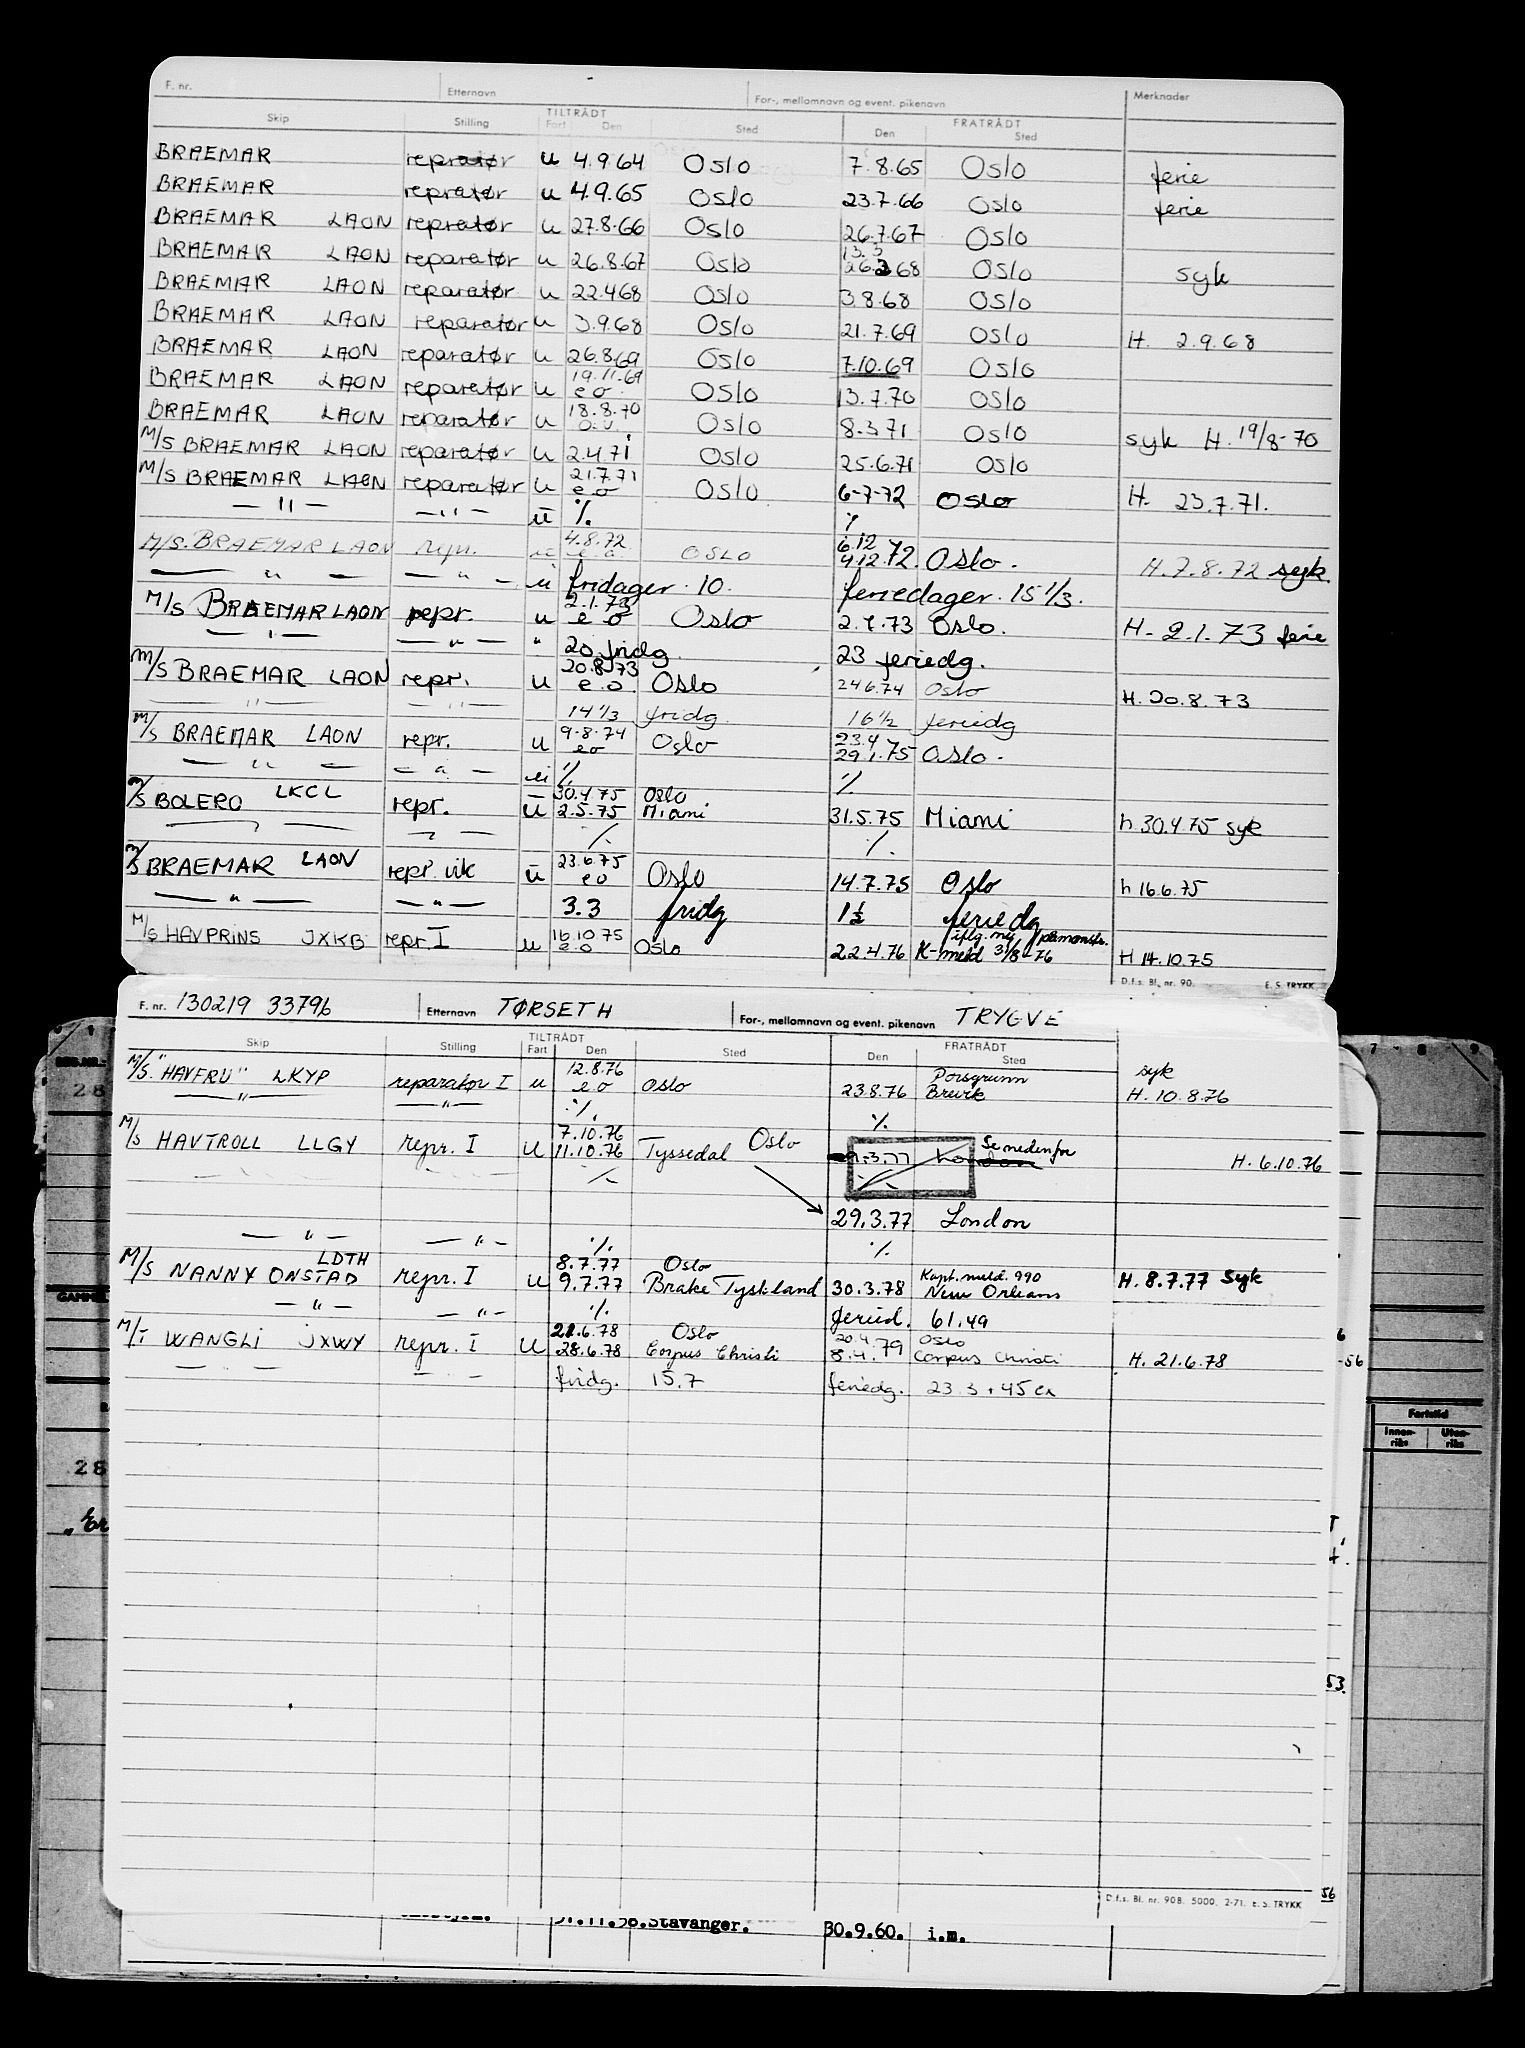 F. nr. Etternavn For-, mellomnavn og event. pikenavn Merknader
Skip Stilling TILTRÅDT Fart Den Sted FRATRÅDT Den Sted
BRAEMAR repratør u 4.9.64 Oslo 7.8.65 Oslo ferie
BRAEMAR repratør u 4.9.65 Oslo 23.7.66 Oslo ferie
BRAEMAR LAON repratør u 27.8.66 Oslo 26.7.67 Oslo
BRAEMAR LAON reparatør u 26.8.67 Oslo 13.3 26.3 68 Oslo syk
BRAEMAR LAON reparatør u 22.4 68 Oslo 3.8.68 Oslo
BRAEMAR LAON reparatør u 3.9.68 Oslo 21.7.69 Oslo H. 2.9.68
BRAEMAR LAON reparatør u 26.8.69 Oslo 7.10.69 Oslo
BRAEMAR LAON reparatør u 19.11.69 e o Oslo 13.7.70 Oslo
BRAEMAR LAON reparatør u 18.8.70 Oslo 8.3.71 Oslo syk H. 19/8-70
M/S BRAEMAR LAON reparatør u 2.4.71 Oslo 25.6.71 Oslo
M/S BRAEMAR LAON reparatør u 21.7.71 e o Oslo 6-7-72 Oslo H. 23.7.71.
— " — — " — u % %
M/S. BRAEMAR LAON repr. u 4.8.72 e o OSLO 6.12 4.12.72. Oslo. H. 7.8.72 syk.
— " — — " — u fridager. 10. feriedager. 15 1/3.
M/S BRAEMAR LAON repr. u 2.1.73 e o Oslo 2.7.73 Oslo. H. 2.1.73 ferie
— " — — " — " 20 fridg. 23 feriedg.
M/S BRAEMAR LAON repr. u 20.8.73 e.o. Oslo 24.6.74 Oslo H. 20.8.73
" " 14 1/3 fridg. 16 1/2 feriedg
M/S BRAEMAR LAON repr. u 9.8.74 eo Oslo 23.4 29.1.75 Oslo.
— " — — " — u % %
M/S BOLERO LKCL repr. u 30.4.75 Oslo 2.5.75 Miami 31.5.75 Miami h 30.4.75 syk
— " — — " — % %
M/S BRAEMAR LAON repr. vik u 23.6.75 e o Oslo 14.7.75 Oslo h 16.6.75
— " — — " — 3.3 fridg 1 1/2 feriedg
M/S HAVPRINS JXKB repr. I u 16.10.75 e.o Oslo 22.4.76 K-meld 31/8-76 iflg. H 14.10.75
D.f.s. Bl. nr. 90. E. S. TRYKK
F. nr. 130219 33796 Etternavn TØRSETH For-, mellomnavn og event. pikenavn TRYGVE
Skip Stilling TILTRÅDT Fart Den Sted FRATRÅDT Den Sted
M/S. "HAVFRU" LKYP reparatør I u 12.8.76 e o Oslo 23.8.76 Porsgrunn Brevik syk H. 10.8.76
— " — — " — % %
M/S HAVTROLL LLGY repr. I u 7.10.76 Oslo 11.10.76 Tyssedal 9.3.77 London Se nedenfor H. 6.10.76
%
29.3.77 London
— " — — " — % %
M/S NANNY ONSTAD LDTH repr. I u 8.7.77 Oslo 9.7.77 Brake Tyskland 30.3.78 Kapt. meld. 990 New Orleans H. 8.7.77 Syk
— " — — " — % feried. 61.49
M/T WANGLI JXWY repr. I u 21.6.78 Oslo 28.6.78 Corpus Christi 20.4.79 Oslo 8.4. Corpus Christi H. 21.6.78
— — — — fridg. 15.7 feriedg. 23.3 + 45
D.f.s. Bl. nr. 90B. 5000. 2-71. E. S. TRYKK
Stavanger. 30.9.60. i.m.
28
28
7 - 8 - 9
-56
Fartstid
Innenriks Utenriks
53.
56